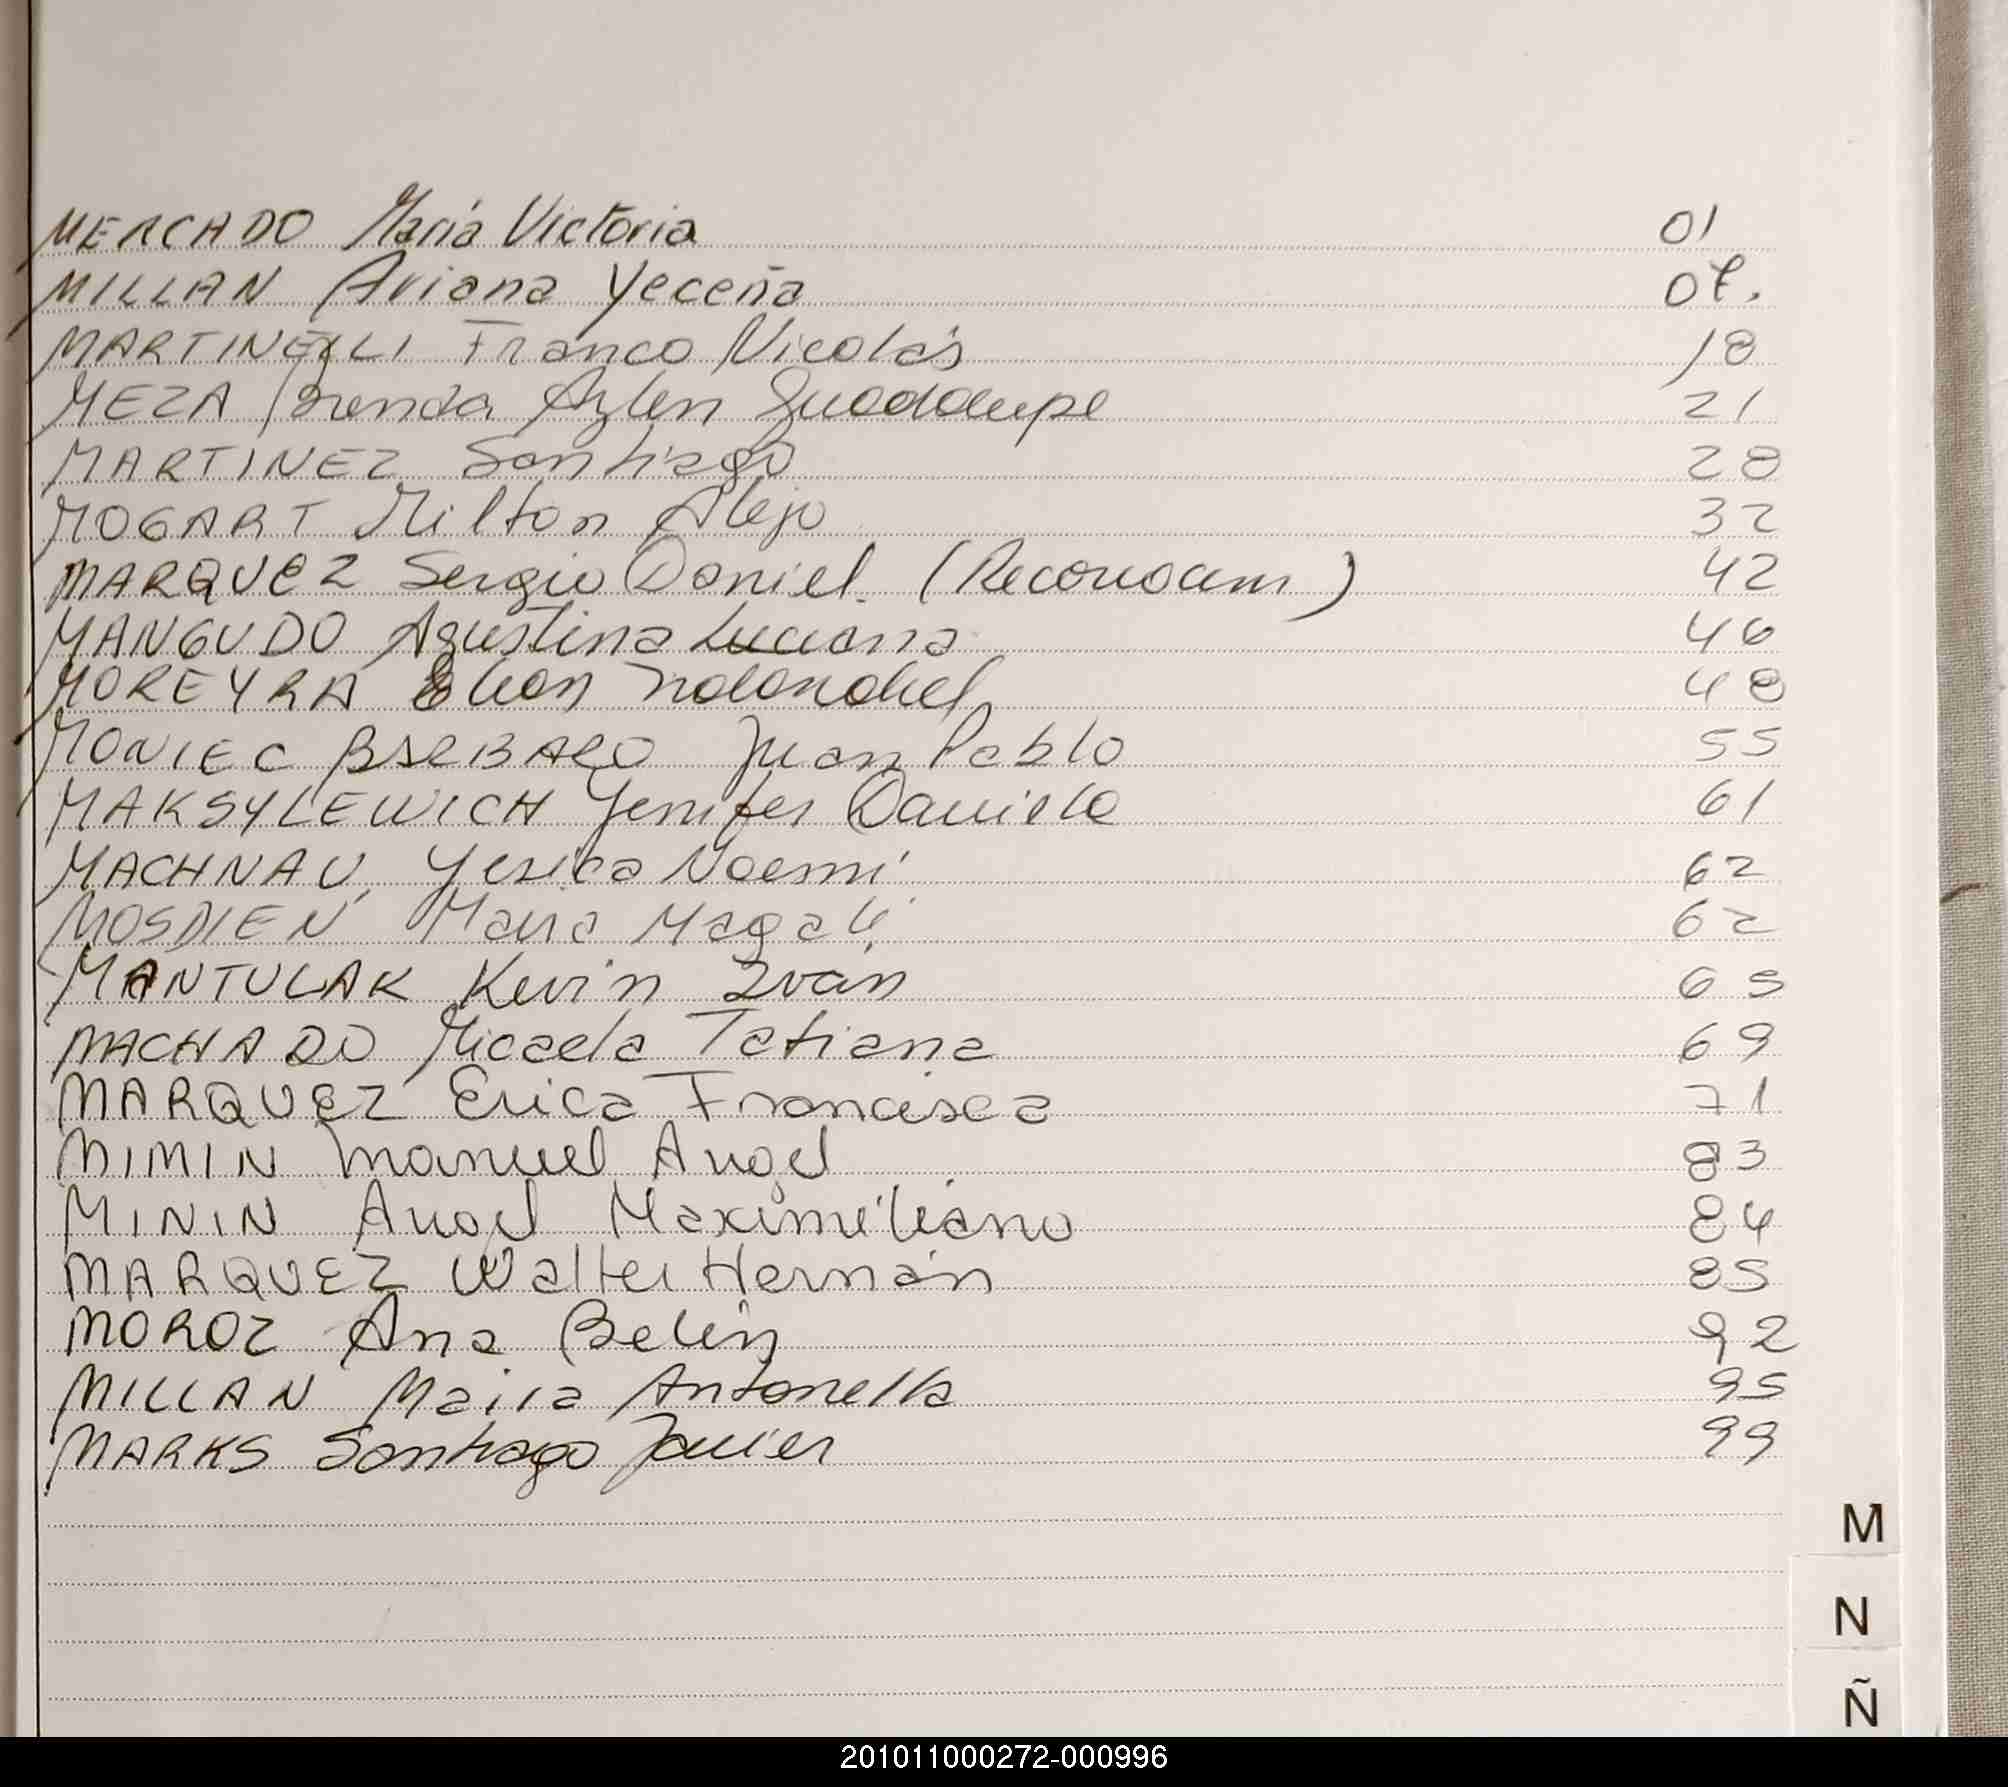 MERCADO María Victoria 01
MILLAN Ariana Yeceña 07.
MARTINELLI Franco Nicolás 18
MEZA Brenda Aylen Guadalupe 21
MARTINEZ Santiago 28
MOGART Milton Alejo 32
MARQUEZ Sergio Daniel. (Reconocim) 42
MANGUDO Agustina Luciana 46
MOREYRA 48
MONIEC BARBARO Juan Pablo 55
MAKSYLEWICH Yenifer Daniela 61
MACHNAU Yesica Noemí 62
MOSDIEN Maria Magali 62
MANTULAK Kevin Iván 65
MACHADO Micaela Tatiana 69
MARQUEZ Erica Francisca 71
MIMIN Manuel Angel 83
MININ Angel Maximiliano 84
MARQUEZ Walter Hernán 85
MOROZ Ana Belén 92
MILLAN Maira Antonella 95
MARKS Santiago Javier 99
M
N
Ñ
201011000272-000996